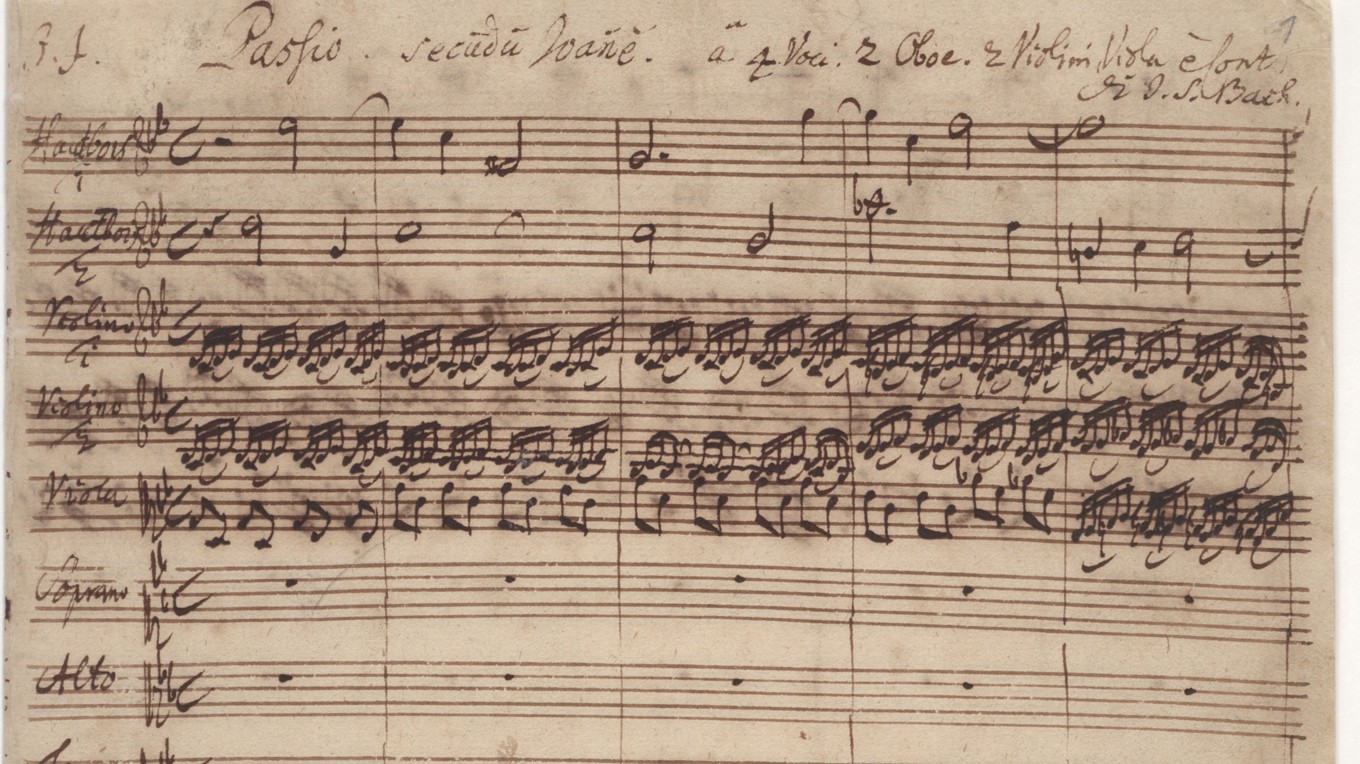 J. J. Passio. secūdū Joañē. à 4 Voci. 2 Oboe. 2 Violini, Viola è Cont.
di J. S. Bach.
1
Hautbois
1
Hautbois
2
Violino
1
Violino
2
Viola
Soprano
Alto